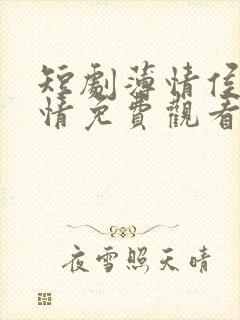 短劇薄情侯
情免費觀看
夜雪照天晴